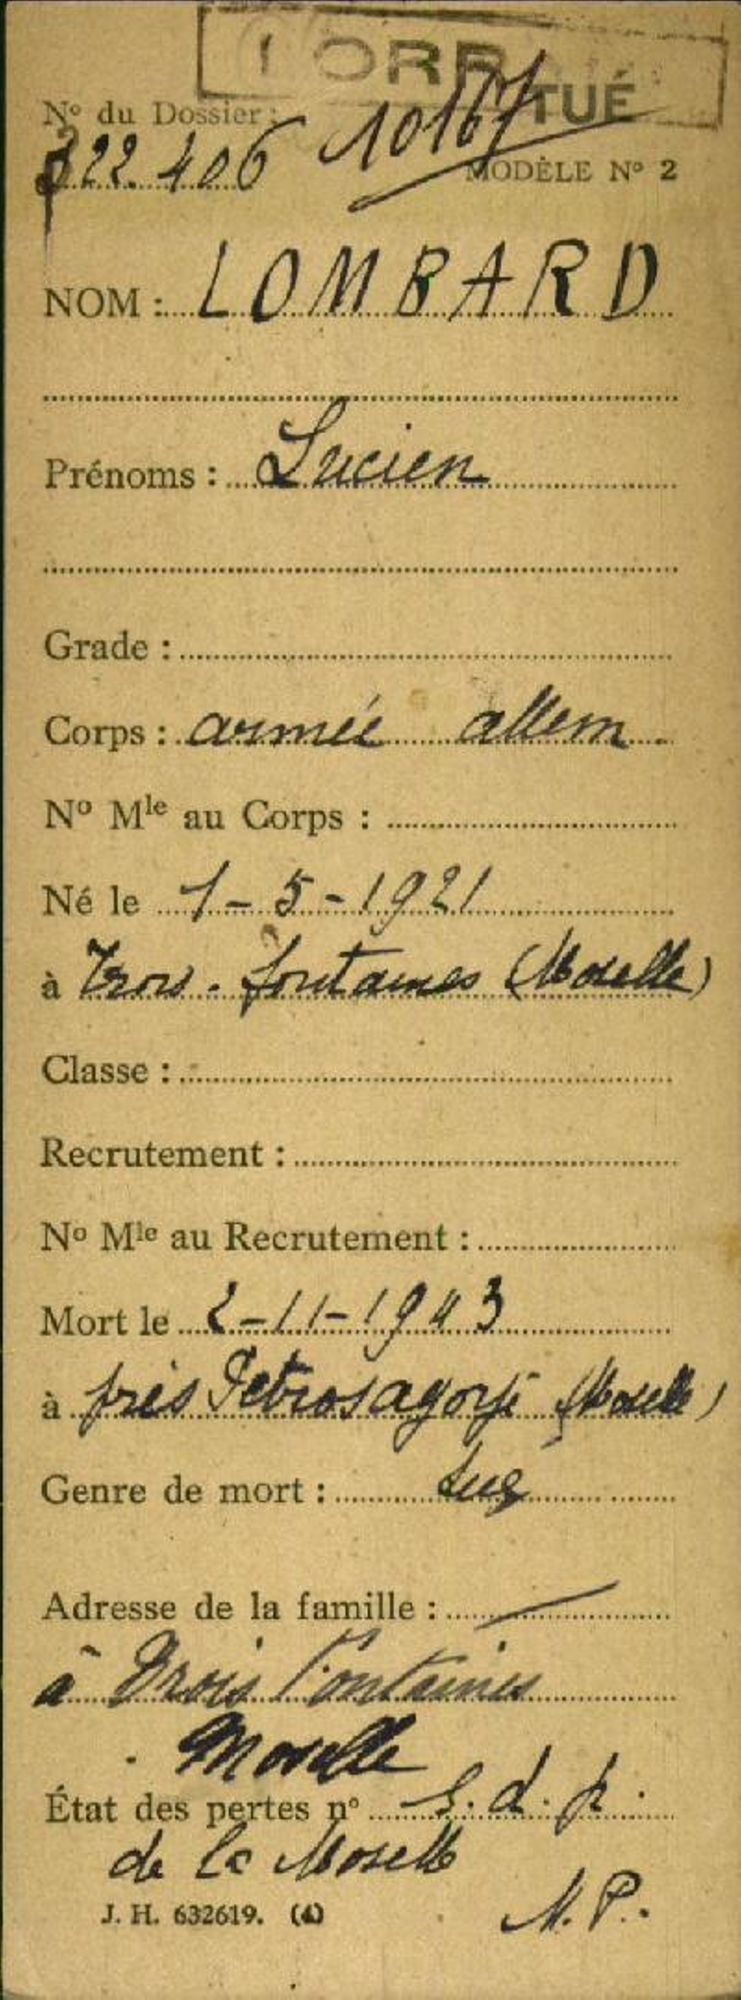 TUÉ
N° du Dossier :
322.406 10167
MODÈLE N° 2
NOM : LOMBARD
Prénoms : Lucien
Grade :
Corps : armée allem.
N° Mle au Corps :
Né le 1-5-1921
à Trois-fontaines (Moselle)
Classe :
Recrutement :
N° Mle au Recrutement :
Mort le 2-11-1943
à près Petrosagorje (Moselle)
Genre de mort : tué
Adresse de la famille :
à Trois Fontaines
Moselle
État des pertes n° S.d.p.
de la Moselle
J. H. 632619. (4)
M.P.